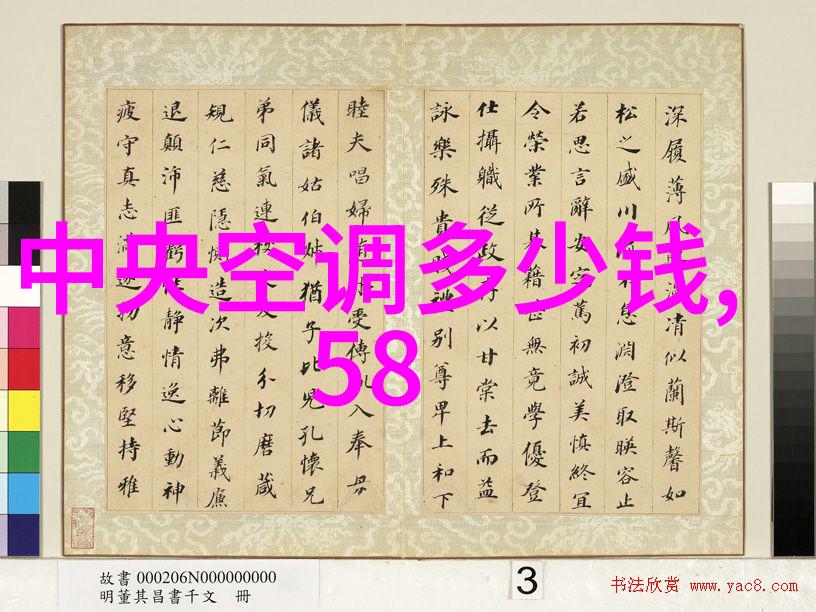 深履薄夙清似蘭斯馨如
松之盛川不息淵澄取暎容止
若思言辭安定篤初誠美慎終宜
令榮業所基藉甚無竟學優登
仕攝職從政存以甘棠去而益
詠樂殊貴賤禮別尊卑上和下
睦夫唱婦受傅入奉母
儀諸姑伯叔猶子比兒孔懷兄
弟同氣連枝交友投分切磨箴
規仁慈隱惻造次弗離節義廉
退顛沛匪虧性靜情逸心動神
疲守真志滿逐物意移堅持雅
中央空调多少钱,
58
故書 000206N000000000
明董其昌書千文 冊
3
书法欣赏 www.yac8.com